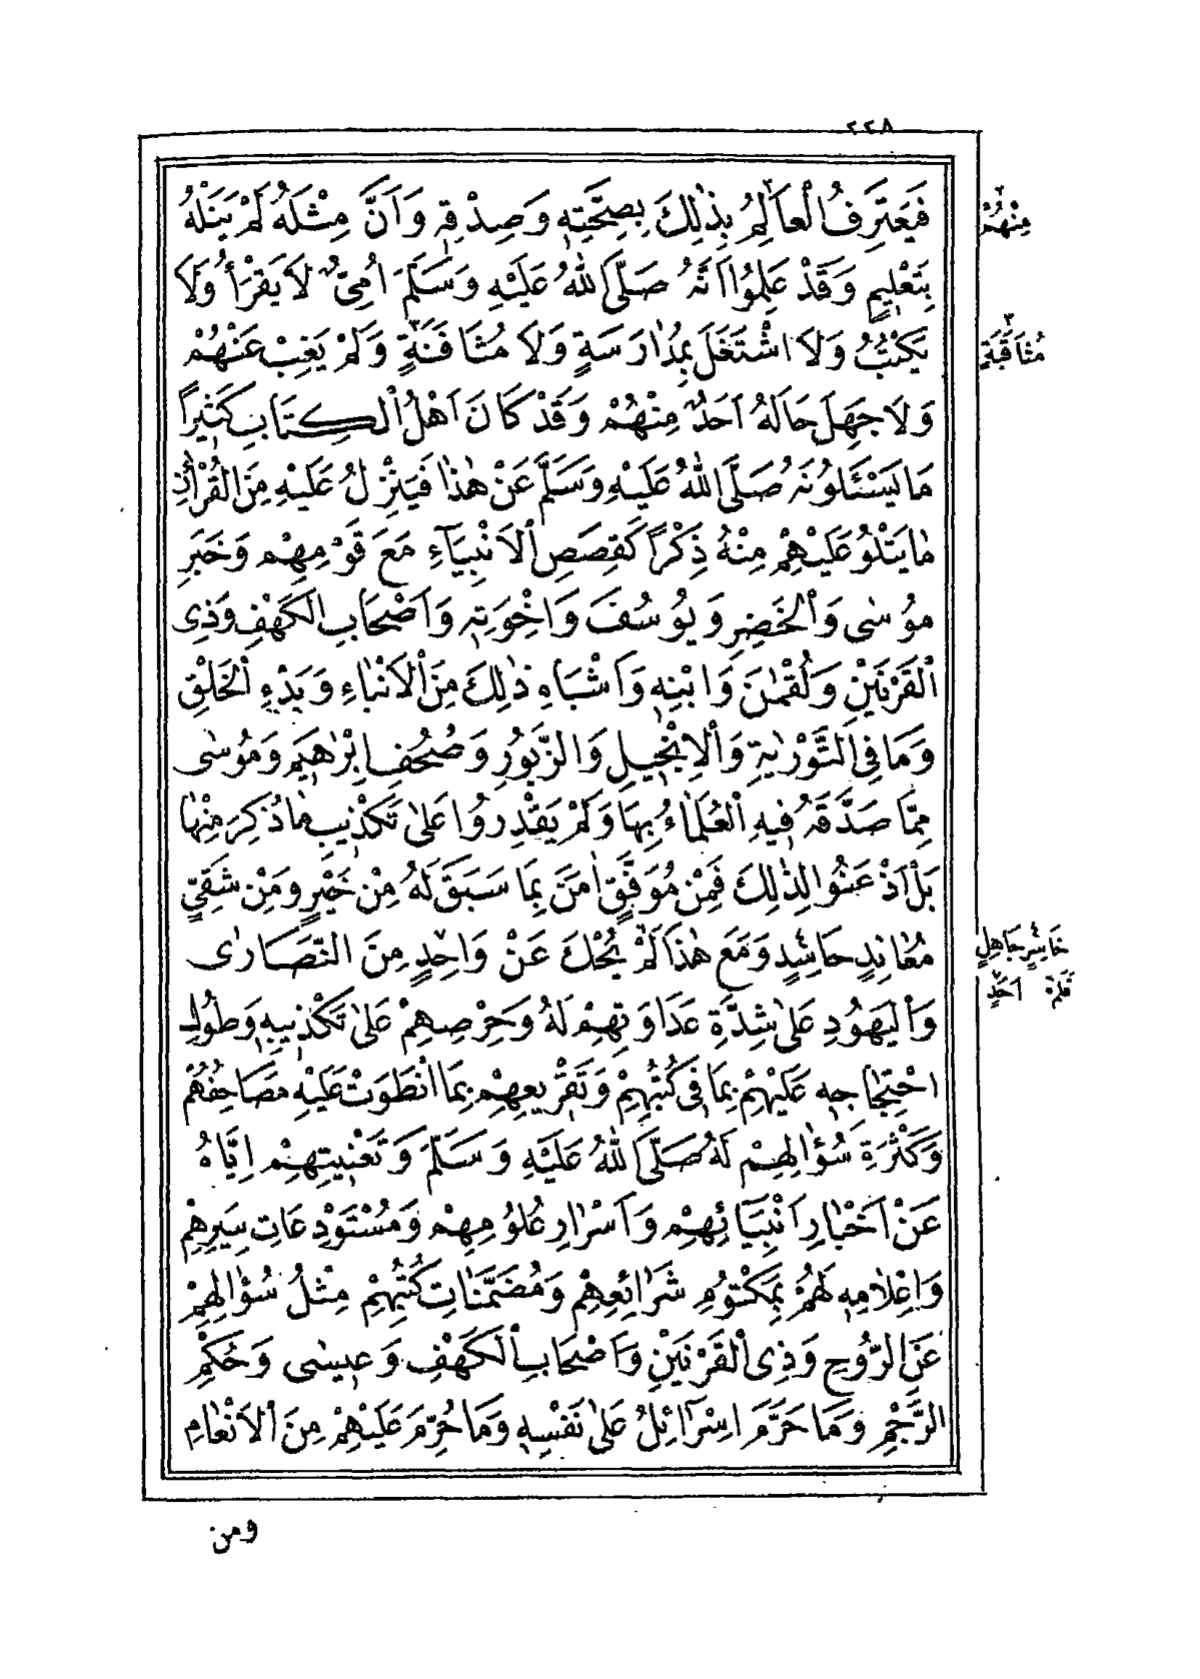 ٢٢٨
فَيَعْتَرِفُ الْعَالِمُ بِذٰلِكَ بِصِحَّتِهِ وَصِدْقِهِ وَاَنَّ مِثْلَهُ لَمْ يَنَلْهُ
بِتَعْلِيمٍ وَقَدْ عَلِمُوا اَنَّهُ صَلَّى اللّٰهُ عَلَيْهِ وَسَلَّمَ اُمِّىٌّ لَا يَقْرَأُ وَلَا
يَكْتُبُ وَلَا اشْتَغَلَ بِمُدَارَسَةٍ وَلَا مُثَافَنَةٍ وَلَمْ يَغِبْ عَنْهُمْ
وَلَا جَهِلَ حَالَهُ اَحَدٌ مِنْهُمْ وَقَدْ كَانَ اَهْلُ الْكِتَابِ كَثِيرًا
مَا يَسْئَلُونَهُ صَلَّى اللّٰهُ عَلَيْهِ وَسَلَّمَ عَنْ هٰذَا فَيَنْزِلُ عَلَيْهِ مِنَ الْقُرْاٰنِ
مَا يَتْلُو عَلَيْهِمْ مِنْهُ ذِكْرًا كَقِصَصِ الْاَنْبِيَآءِ مَعَ قَوْمِهِمْ وَخَبَرِ
مُوسٰى وَالْخَضِرِ وَيُوسُفَ وَاِخْوَتِهِ وَاَصْحَابِ الْكَهْفِ وَذِى
الْقَرْنَيْنِ وَلُقْمٰنَ وَابْنِهِ وَاَشْبَاهِ ذٰلِكَ مِنَ الْاَنْبَاءِ وَبَدْءِ الْخَلْقِ
وَمَا فِى التَّوْرٰيةِ وَالْاِنْجِيلِ وَالزَّبُورِ وَصُحُفِ اِبْرٰهِيمَ وَمُوسٰى
مِمَّا صَدَّقَهُ فِيهِ الْعُلَمَاءُ بِهَا وَلَمْ يَقْدِرُوا عَلٰى تَكْذِيبِ مَا ذُكِرَ مِنْهَا
بَلْ اَذْعَنُوا لِذٰلِكَ فَمِنْ مُوَفَّقٍ اٰمَنَ بِمَا سَبَقَ لَهُ مِنْ خَيْرٍ وَمِنْ شَقِىٍّ
مُعَانِدٍ حَاسِدٍ وَمَعَ هٰذَا لَمْ يُحْكَ عَنْ وَاحِدٍ مِنَ النَّصَارٰى
وَالْيَهُودِ عَلٰى شِدَّةِ عَدَاوَتِهِمْ لَهُ وَحِرْصِهِمْ عَلٰى تَكْذِيبِهِ وَطُولِ
احْتِجَاجِهِ عَلَيْهِمْ بِمَا فِى كُتُبِهِمْ وَتَقْرِيعِهِمْ بِمَا انْطَوَتْ عَلَيْهِ مَصَاحِفُهُمْ
وَكَثْرَةِ سُؤَالِهِمْ لَهُ صَلَّى اللّٰهُ عَلَيْهِ وَسَلَّمَ وَتَعْنِيتِهِمْ اِيَّاهُ
عَنْ اَخْبَارِ اَنْبِيَائِهِمْ وَاَسْرَارِ عُلُومِهِمْ وَمُسْتَوْدِعَاتِ سِيَرِهِمْ
وَاِعْلَامِهِ لَهُمْ بِمَكْتُومِ شَرَائِعِهِمْ وَمُضَمَّنَاتِ كُتُبِهِمْ مِثْلُ سُؤَالِهِمْ
عَنِ الرُّوحِ وَذِى الْقَرْنَيْنِ وَاَصْحَابِ الْكَهْفِ وَعِيسٰى وَحُكْمِ
الرَّجْمِ وَمَا حَرَّمَ اِسْرَآئِلُ عَلٰى نَفْسِهِ وَمَا حُرِّمَ عَلَيْهِمْ مِنَ الْاَنْعَامِ
ومن
٢
مِنْهُمْ
٣
مُثَاقَبَةٍ
خَاسِرٍ جَاهِلٍ
فَلَمْ اَحَدٍ